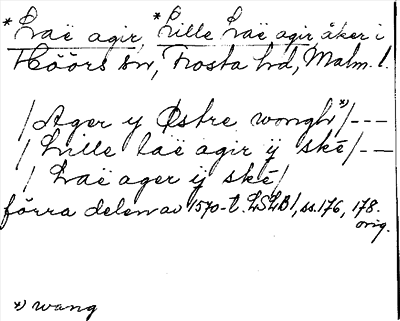 *Laë agir, *Lille Laë agir åker i
Höörs sn, Frosta hd, Malm. l.
/Ager y Østre wongh*)/---
/Lille laë agir ÿ skē/--
/Laë ager ÿ skē/
förra delen av 1570-t. LSLB 1, ss. 176, 178.
orig.
*) wang